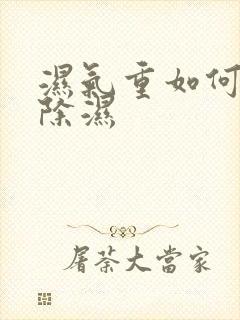 濕氣重如何
除濕
屠荼大當家